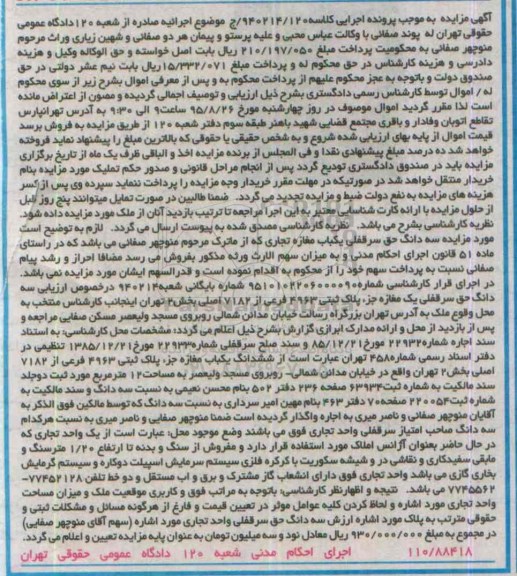 آگهی مزایده به موجب پرونده اجرایی کلاسه ۹۴۰۲۱۴/۱۲۰/ج موضوع اجرائیه صادره از شعبه ۱۲۰دادگاه عمومی
حقوقی تهران له پوند صفائی با وکالت عباس محبی و علیه پرستو و پیمان هر دو صفائی و شهین زیاری وراث مرحوم
منوچهر صفائی به محکومیت پرداخت مبلغ ۲۱۰/۱۹۷/۰۵۰ ریال بابت اصل خواسته و حق الوکاله وکیل و هزینه
دادرسی و هزینه کارشناس در حق محکوم له و پرداخت مبلغ ۱۵/۳۳۲/۰۷۱ریال بابت نیم عشر دولتی در حق
صندوق دولت و باتوجه به عجز محکوم علیهم از پرداخت محکوم به و پس از معرفی اموال بشرح زیر از سوی محکوم
له / اموال توسط کارشناس رسمی دادگستری بشرح ذیل ارزیابی و توصیف اجمالی گردیده و مصون از اعتراض مانده
است لذا مقرر گردید اموال موصوف در روز چهارشنبه مورخ ۹۵/۸/۲۶ ساعت۹ الی ۹:۳۰ به آدرس تهرانپارس
تقاطع اتوبان وفادار و باقری مجتمع قضایی شهید باهنر طبقه سوم دفتر شعبه ۱۲۰ از طریق مزایده به فروش برسد
قیمت اموال از پایه بهای ارزیابی شده شروع و به شخص حقیقی یا حقوقی که بالاترین مبلغ را پیشنهاد نماید فروخته
خواهد شد ده درصد مبلغ پیشنهادی نقدا و فی المجلس از برنده مزایده اخذ و الباقی ظرف یک ماه از تاریخ برگزاری
مزایده باید در صندوق دادگستری تودیع گردد پس از انجام مراحل قانونی و صدور حکم تملیک مورد مزایده بنام
خریدار منتقل خواهد شد در صورتیکه در مهلت مقرر خریدار وجه مزایده را پرداخت ننماید سپرده وی پس از کسر
هزینه های مزایده به نفع دولت ضبط و مزایده تجدید می گردد. ضمنا طالبین در صورت تمایل میتوانند پنج روز قبل
از حلول مزایده با ارائه کارت شناسایی معتبر به این اجرا مراجعه تا ترتیب بازدید آنان از ملک مورد مزایده داده شود.
نظریه کارشناسی بشرح می باشد. نظریه کارشناسی مصدق شده به پیوست ارسال می گردد. لازم به توضیح است
مورد مزایده سه دانگ حق سرقفلی یکباب مغازه تجاری که از ماترک مرحوم منوچهر صفائی می باشد که در راستای
ماده ۵۱ قانون اجرای احکام مدنی و به میزان سهم الارث ورثه مذکور بفروش می رسد مضافا احراز و رشد پیام
صفائی نسبت به پرداخت سهم خود را از محکوم به اقدام نموده است و قدرالسهم ایشان مورد مزایده نمی باشد.
در اجرای قرار کارشناسی شماره۹۵۱۰۱۰۲۲۰۶۰۰۰۰۹۰ شماره بایگانی شعبه۹۴۰۲۱۴ درخصوص ارزیابی سه
دانگ حق سرقفلی یک مغازه جز، پلاک ثبتی ۴۹۶۳ فرعی از ۷۱۸۲ اصلی بخش۲ تهران اینجانب کارشناس منتخب به
محل وقوع ملک به آدرس تهران بزرگراه رسالت خیابان مدائن شمالی روبروی مسجد ولیعصر مسکن صفایی مراجعه و
پس از بازدید از محل و ارائه مدارک ابرازی گزارش بشرح ذیل اعلام می گردد: مشخصات محل کارشناسی: به استناد
سند اجاره شماره۲۲۹۳۲ مورخ ۸۵/۱۲/۲۱ و سند صلح سرقفلی شماره۲۲۹۳۳ مورخ۱۳۸۵/۱۲/۲۱ تنظیمی در
دفتر اسناد رسمی شماره۴۵۸ تهران عبارت است از ششدانگ یکباب مغازه جزء پلاک ثبتی ۴۹۶۳ فرعی از ۷۱۸۲
اصلی بخش۲ تهران واقع در خیابان مدائن شمالی- روبروی مسجد ولیعصر به مساحت۱۲ مترمربع مورد ثبت دوجلد
سند مالکیت به شماره ثبت۶۳۹۳۴ صفحه ۲۳۶ دفتر ۵۰۲ بنام محسن نعیمی به نسبت سه دانگ و سند مالکیت به
شماره ثبت۲۲۰۰۵۴ صفحه۷۰ دفتر ۴۶۳ بنام مهین امیر سرداری به نسبت سه دانگ که توسط مالکین فوق الذکر به
آقایان منوچهر صفائی و ناصر میری به اجاره واگذار گردیده است ضمنا منوچهر صفایی و ناصر میری به نسبت هرکدام
سه دانگ صاحب امتیاز سرقفلی واحد تجاری فوق می باشند وضع موجود محل: عبارت است از یک واحد تجاری که
در حال حاضر بعنوان آژانس املاک مورد استفاده قرار دارد و مفروش از سنگ و بدنه تا ارتفاع ۱/۲۰ مترسنگ و
مابقی سفیدکاری و نقاشی در و شیشه سکوریت با کرکره فلزی سیستم سرمایش اسپیلت دوکاره و سیستم گرمایش
بخاری گازی می باشد واحد تجاری فوق دارای انشعاب گاز مشترک و برق و اب مستقل و دو خط تلفن ۷۷۴۵۲۱۲۸-
۷۷۴۵۵۶۲ می باشد. نتیجه و اظهارنظر کارشناسی: باتوجه به مراتب فوق و کاربری موقعیت ملک و میزان مساحت
واحد تجاری مورد اشاره و لحاظ کردن کلیه عوامل موثر در تعیین قیمت و فارغ از هرگونه مسائل و مشکلات ثبتی و
حقوقی مترتب به پلاک مورد اشاره ارزش سه دانگ حق سرقفلی واحد تجاری مورد اشاره (سهم آقای منوچهر صفایی)
در مجموع به مبلغ ۹۳۰/۰۰۰/۰۰۰ ریال معادل نود و سه میلیون تومان به عنوان پایه مزایده تعیین و اعلام می گردد.
۱۱۰/۸۸۴۱۸ اجرای احکام مدنی شعبه ۱۲۰ دادگاه عمومی حقوقی تهران